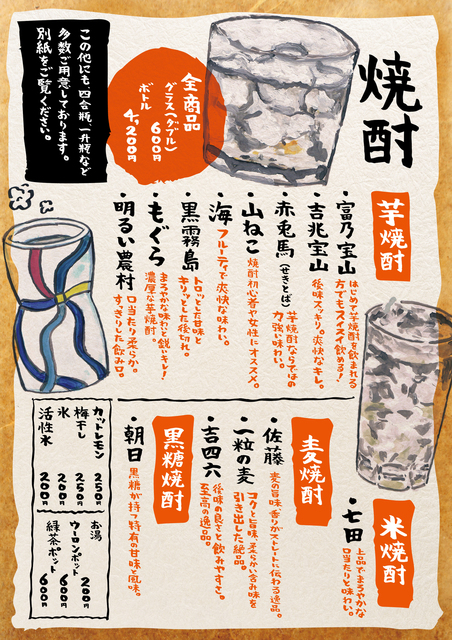 焼酎
全商品
グラス(ダブル)
600円
ボトル
4,200円
この他にも、四合瓶、一升瓶など
多数ご用意しております。
別紙をご覧ください。
芋焼酎
・富乃宝山
はじめて芋焼酎を飲まれる
方でもスイスイ飲める!
・吉兆宝山
後味スッキリ。爽快なキレ。
・赤兎馬(せきとば)
芋焼酎ならではの
力強い味わい。
・山ねこ
焼酎初心者や女性にオススメ。
・海
フルーティで爽快な味わい。
・黒霧島
トロッとした甘味と
キリッとした後切れ。
・もぐら
まろやかな味わいと鋭いキレ!
濃厚な芋焼酎。
・明るい農村
口当たり柔らか。
すっきりした飲み口。
米焼酎
・七田
上品でまろやかな
口当たりと味わい。
麦焼酎
・佐藤
麦の旨味、香りがストレートに伝わる逸品。
・一粒の麦
コクと旨味、柔らかい含み味を
引き出した絶品。
・吉四六
後味の良さと飲みやすさ。
至高の逸品。
黒糖焼酎
・朝日
黒糖が持つ特有の甘味と風味。
カットレモン 250円
梅干し 250円
氷 200円
活性氷 200円
お湯 200円
ウーロンポット 600円
緑茶ポット 600円